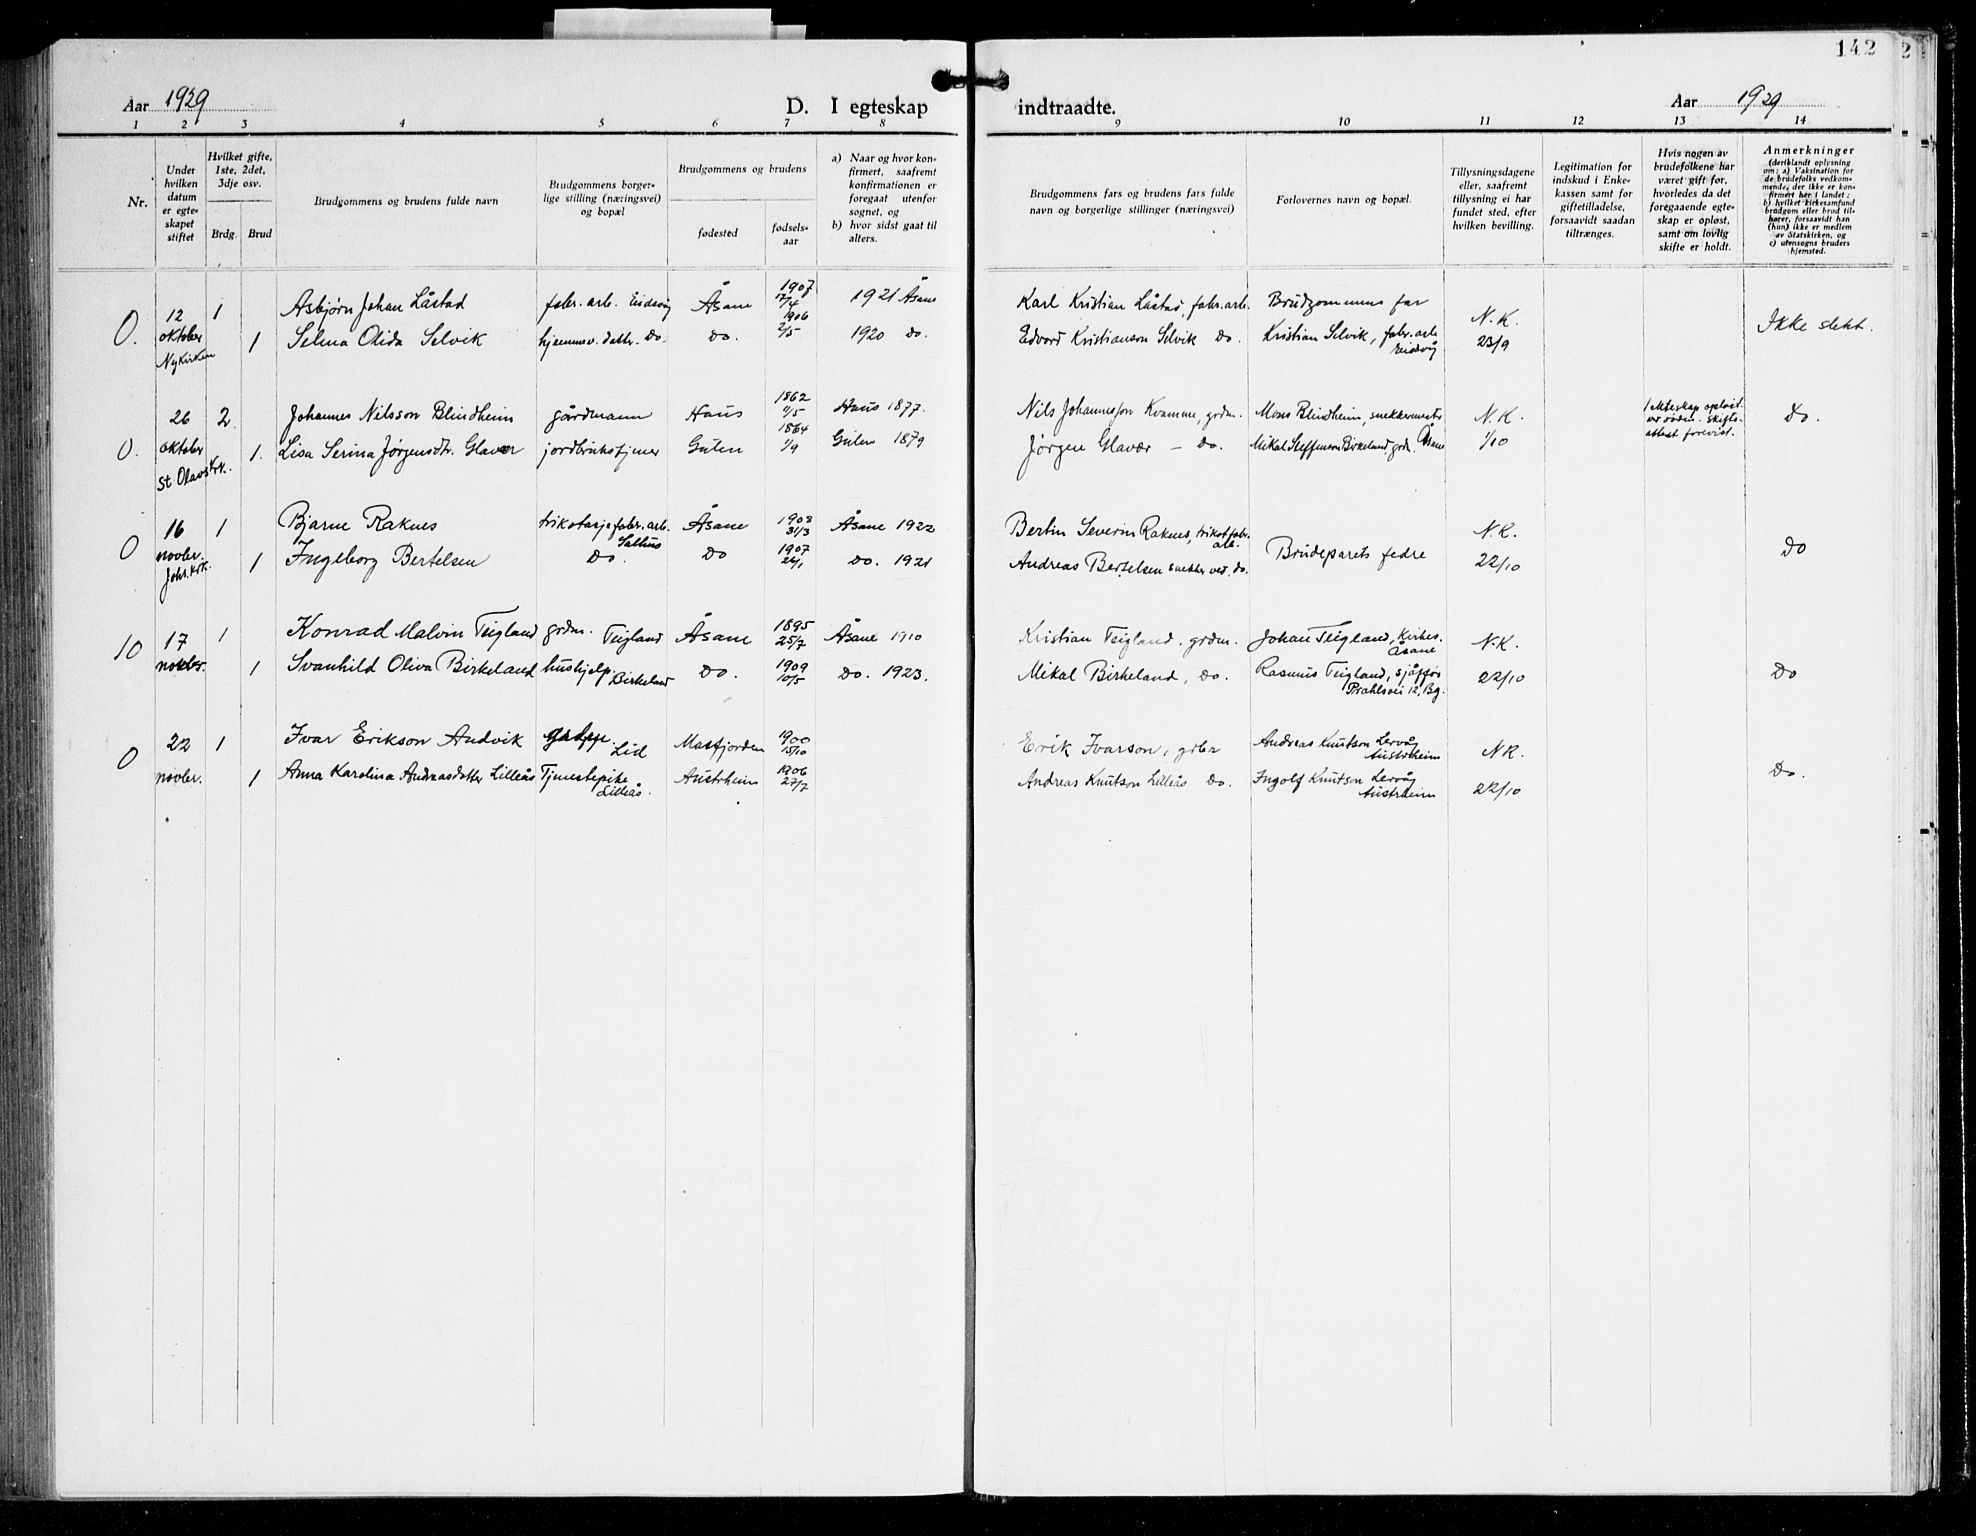 142
Aar 1929
D. I egteskap indtraadte.
Aar 1929
1 2 3 4 5 6 7 8 9 10 11 12 13 14
Nr.
Under hvilken datum er egteskapet stiftet
Hvilket gifte, 1ste, 2det, 3dje osv.
Brdg. Brud
Brudgommens og brudens fulde navn
Brudgommens borgerlige stilling (næringsvei) og bopæl
Brudgommens og brudens
fødested
fødselsaar
a) Naar og hvor konfirmert, saafremt konfirmationen er foregaat utenfor sognet, og
b) hvor sidst gaat til alters.
Brudgommens fars og brudens fars fulde navn og borgerlige stillinger (næringsvei)
Forlovernes navn og bopæl.
Tillysningsdagene eller, saafremt tillysning ei har fundet sted, efter hvilken bevilling.
Legitimation for indskud i Enkekassen samt for giftetilladelse, forsaavidt saadan tiltrænges.
Hvis nogen av brudefolkene har været gift før, hvorledes da det foregaaende egteskap er opløst, samt om lovlig skifte er holdt.
Anmerkninger
(deriblandt oplysning om: a) Vaksination for de brudefolks vedkommende, der ikke er konfirmert her i landet; b) hvilket kirkesamfund brudgom eller brud tilhører, forsaavidt han (hun) ikke er medlem av Statskirken, og c) utensogns bruders hjemsted.
0. 12 oktober Nykirken 1 Asbjørn Johan Låstad fabr. arb. Eidsvåg Åsane 1907 17/4 1921 Åsane Karl Kristian Låstad, fabr. arb. Brudgommens far N.K. 23/9 Ikke slekt.
1 Selma Olida Selvik hjemmev. datter. Do. Do. 1906 2/5 1920 Do. Edvard Kristianson Selvik Do. Kristian Selvik, fabr. arb. Eidsvåg
0. 26 oktober St Olavs krk. 2. Johannes Nilsson Blindheim gårdmann Haus 1862 Haus 1877. Nils Johannesson Kvamme, grdm. Mons Blindheim, snekkermester N.K. 1/10 Do.
1. Lisa Serina Jørgensdtr. Glavær jordbrukstjener Gulen 1864 1/9 Gulen 1879 Jørgen Glavær — Do. Mikal Steffenson Birkeland grdm. Åsane
0 16 novbr. Johs. krk. 1 Bjarne Raknes trikotasjefabr. arb. Salhus Åsane 1908 31/3 Åsane 1922 Bertin Severin Raknes, trikot.fabr. arb. Brudeparets fedre N.K. 22/10 Do
1 Ingeborg Bertelsen Do. Do 1907 26/1 Do. 1921 Andreas Bertelsen snekker ved. do.
10 17 novbr. 1 Konrad Malvin Teigland grdm. Teigland Åsane 1895 25/7 Åsane 1910 Kristian Teigland. grdm. Johan Teigland, kirkes. Åsane N.K. 22/10 Do
1 Svanhild Oliva Birkeland hushjelp Birkeland Do. 1909 10/5 Do. 1923. Mikal Birkeland, Do. Rasmus Teigland, sjåffør
0 22 novbr. 1 Ivar Erikson Andvik Lid Masfjorden 1900 15/10 Erik Ivarson, grbr Andreas Knutson Lervåg Austrheim N.K. 22/10 Do.
1 Anna Karolina Andreasdatter Lilleås Tjenestepike Lilleås. Austrheim 1906 27/7 Andreas Knutson Lilleås Do. Ingolf Knutson Lervåg Austrheim